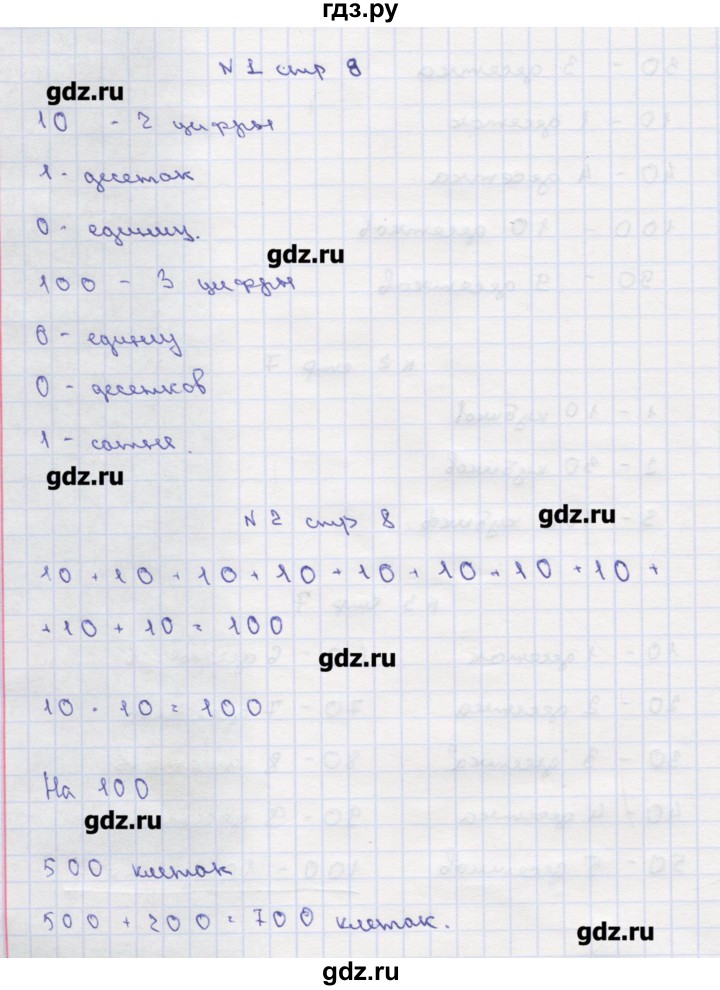 гдз.ру
N 1 стр 8
gdz.ru
10 - 2 цифры
1 - десеток
0 - единиц.
gdz.ru
100 - 3 цифры
0 - единиц
0 - десетков
1 - сотня.
gdz.ru
N 2 стр 8
gdz.ru
10 + 10 + 10 + 10 + 10 + 10 + 10 + 10 +
+ 10 + 10 = 100
gdz.ru
10 · 10 = 100
На 100
gdz.ru
500 клеток
500 + 200 = 700 клеток.
gdz.ru
gdz.ru